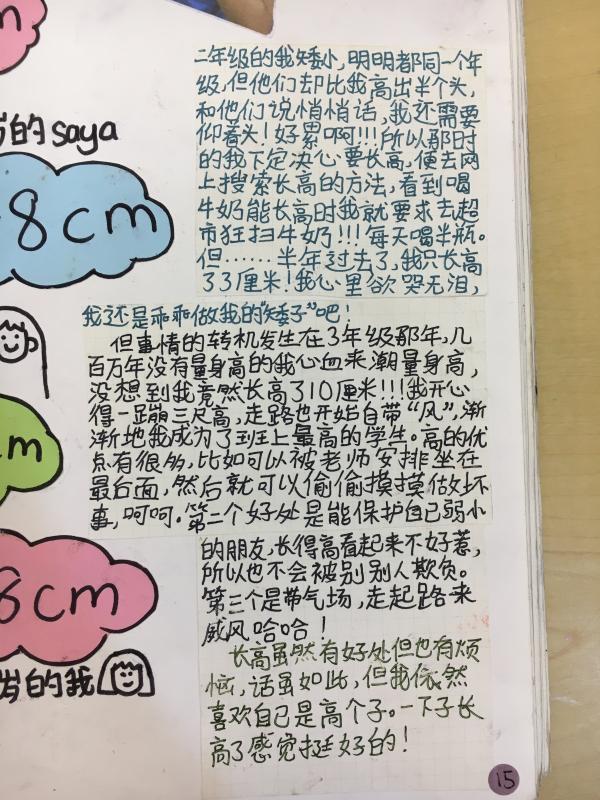 二年级的我矮小，明明都同一个年
级，但他们却比我高出半个头，
和他们说悄悄话，我还需要
仰着头！好累啊!!!所以那时
的我下定决心要长高，便去网
上搜索长高的方法，看到喝
牛奶能长高时我就要求去超
市狂扫牛奶!!!每天喝半瓶。
但……半年过去了，我只长高
了3厘米！我心里欲哭无泪，
我还是乖乖做我的“矮子”吧！
但事情的转机发生在3年级那年，几
百万年没有量身高的我心血来潮量身高，
没想到我竟然长高了10厘米!!!我开心
得一蹦三尺高，走路也开始自带“风”，渐
渐地我成为了班上最高的学生。高的优
点有很多，比如可以被老师安排坐在
最后面，然后就可以偷偷摸摸做坏
事，呵呵。第二个好处是能保护自己弱小
的朋友，长得高看起来不好惹，
所以也不会被别别人欺负。
第三个是带气场，走起路来
威风哈哈！
长高虽然有好处但也有烦
恼，话虽如此，但我依然
喜欢自己是高个子。一下子长
高了感觉挺好的！
岁的saya
8cm
m
8cm
岁的我
15